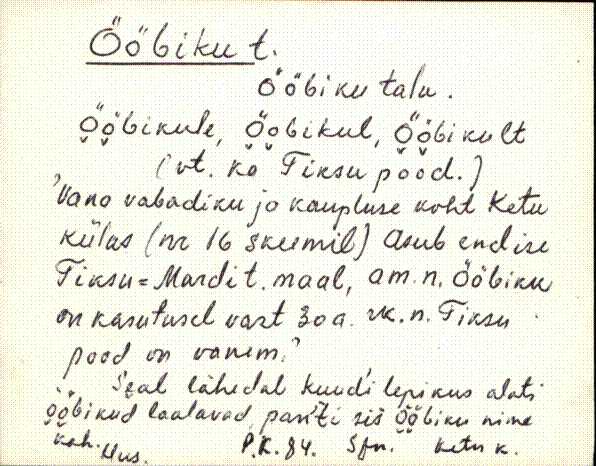 Ööbiku t.
Ööbiku talu.
Ööbikule, Ööbikul, Ööbikult
(vt. ka Tiksu pood.)
"Vana vabadiku ja kaupluse koht Ketu
külas (nr 16 skeemil) Asub endise
Tiksu=Mardi t. maal, am. n. Ööbiku
on kasutusel vast 30 a. rk. n. Tiksu
pood on vanem."
Seal lähedal kuudi lepikus alati
ööbikud laulavad, pan'ti siis Ööbiku nime
P.K. 84. Sjn. Ketu k.